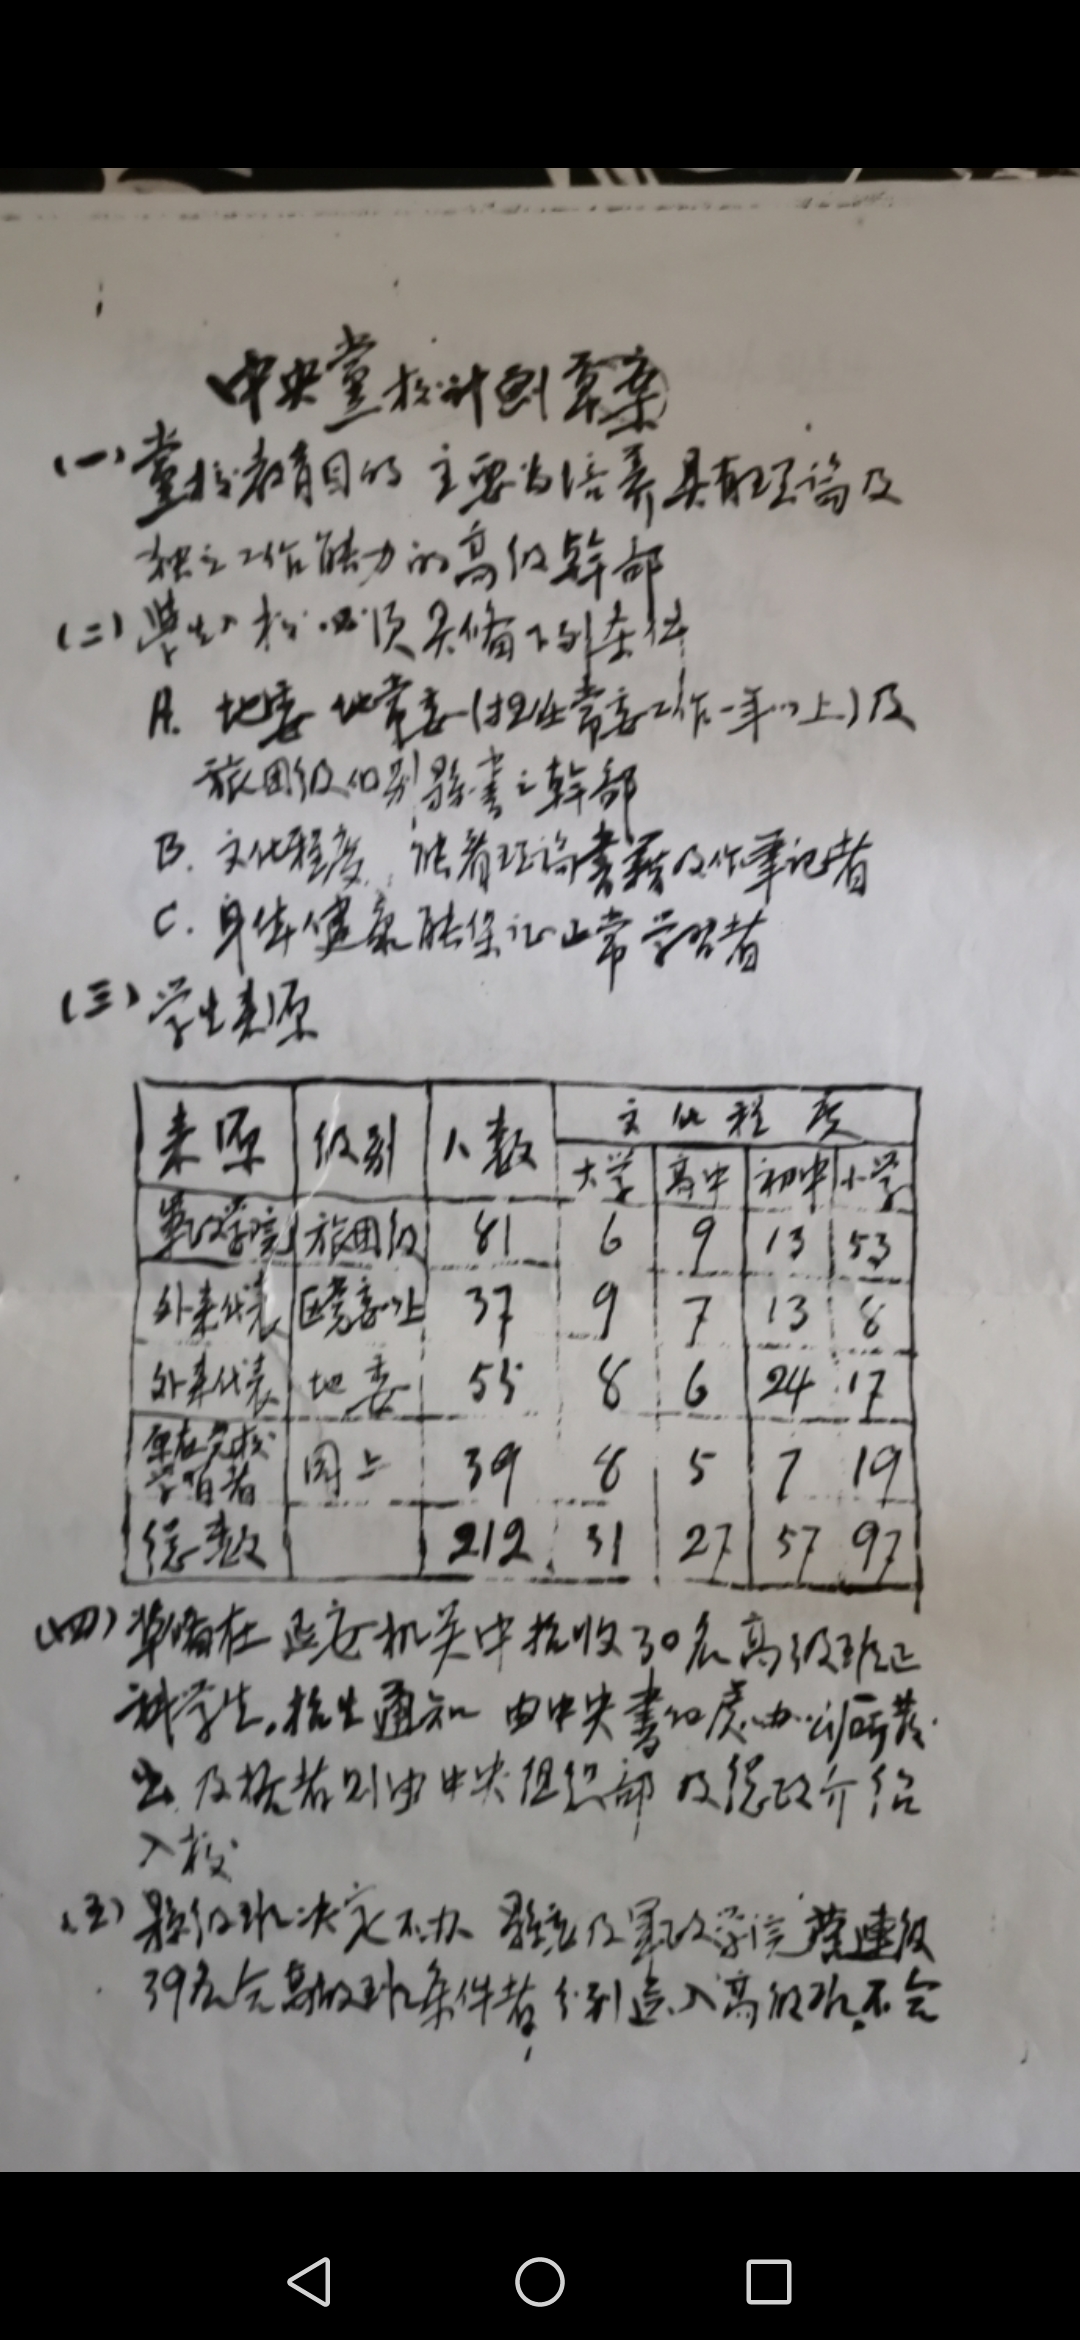 中央黨校计划草案
(一)黨校教育目的 主要为培养具有理论及
独立工作能力的高级幹部
(二)学生入校必须具备下列条件
A. 地委 地常委(担任常委工作一年以上)及
旅团级和别縣書之幹部
B. 文化程度,能看理论書籍及作筆记者
C. 身体健康能保证正常学習者
(三)学生来源
来源 级别 人数 文化程度
大学 高中 初中 小学
軍政学院 旅团级 81 6 9 13 53
外来代表 区党委以上 37 9 7 13 8
外来代表 地委 55 8 6 24 17
原在党校学習者 同上 39 8 5 7 19
總数 212 31 27 57 97
(四)準备在延安机关中招收30名高级班正
式学生。招生通知 由中央書记处办公厅所发
出 及格者则由中央组织部及總政介绍
入校
(五)縣级班决定不办 縣
及軍政学院 营連级
39名合高级班条件者,分别送入高级班。不合